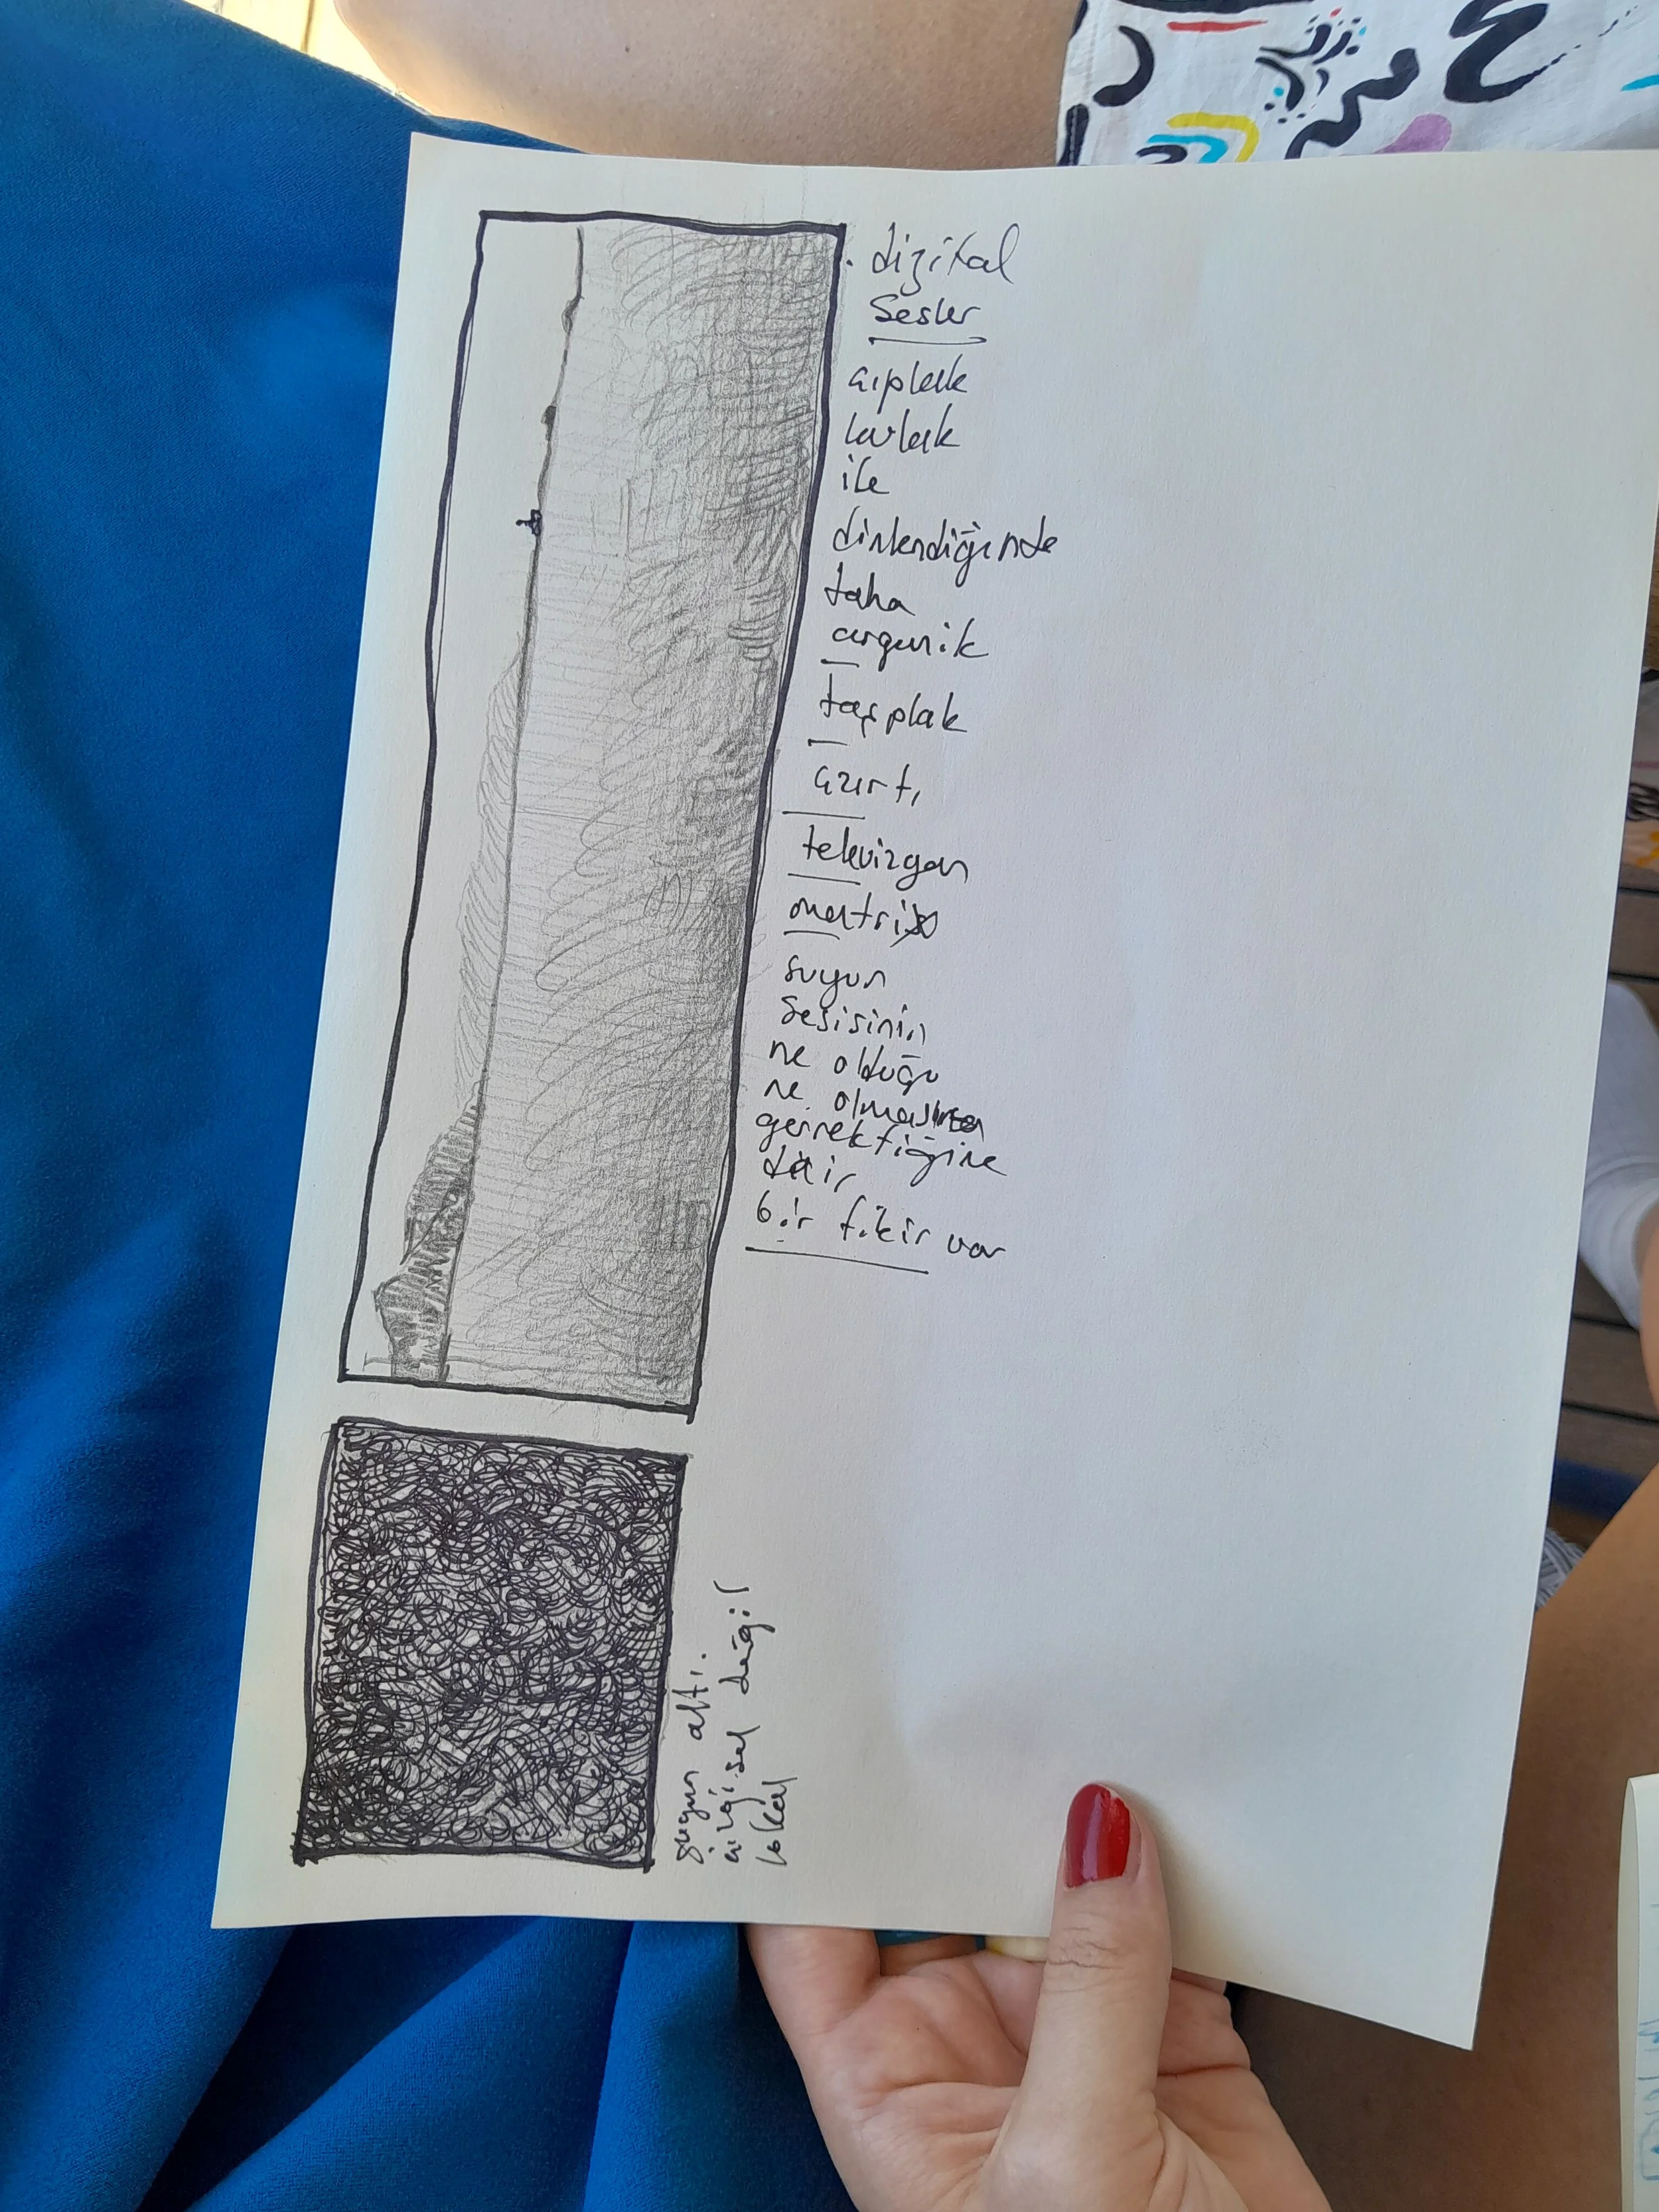 . dizital
Sesler
çıplak
kulak
ile
dinlendiğinde
daha
organik
taşplak
cızırtı
televizyon
matrix
suyun
sesisinin
ne olduğu
ne olması
gerektiğine
dair
bir fikir var
suyun altı.
çizgisel değil
lokal